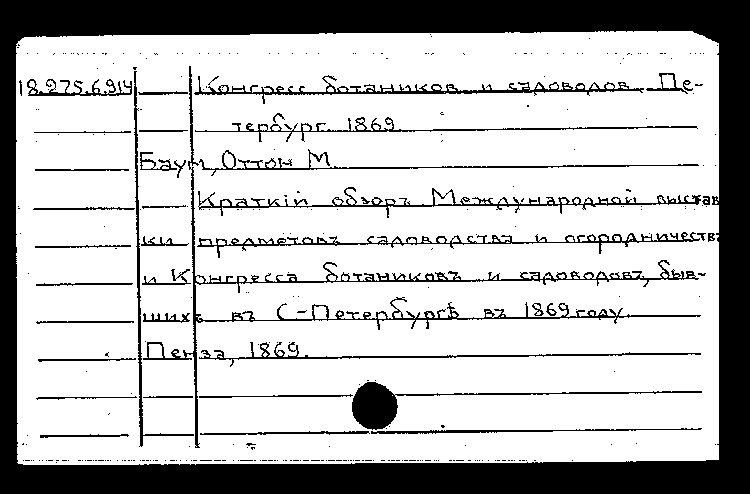 18.275.6.914 Конгресс ботаников и садоводов. Пе-
тербург. 1869.
Баум, Оттон М.
Краткій обзоръ Международной выстав
ки предметовъ садоводства и огородничества
и Конгресса ботаниковъ и садоводовъ, быв-
шихъ въ С-Петербургѣ въ 1869 году.
Пенза, 1869.